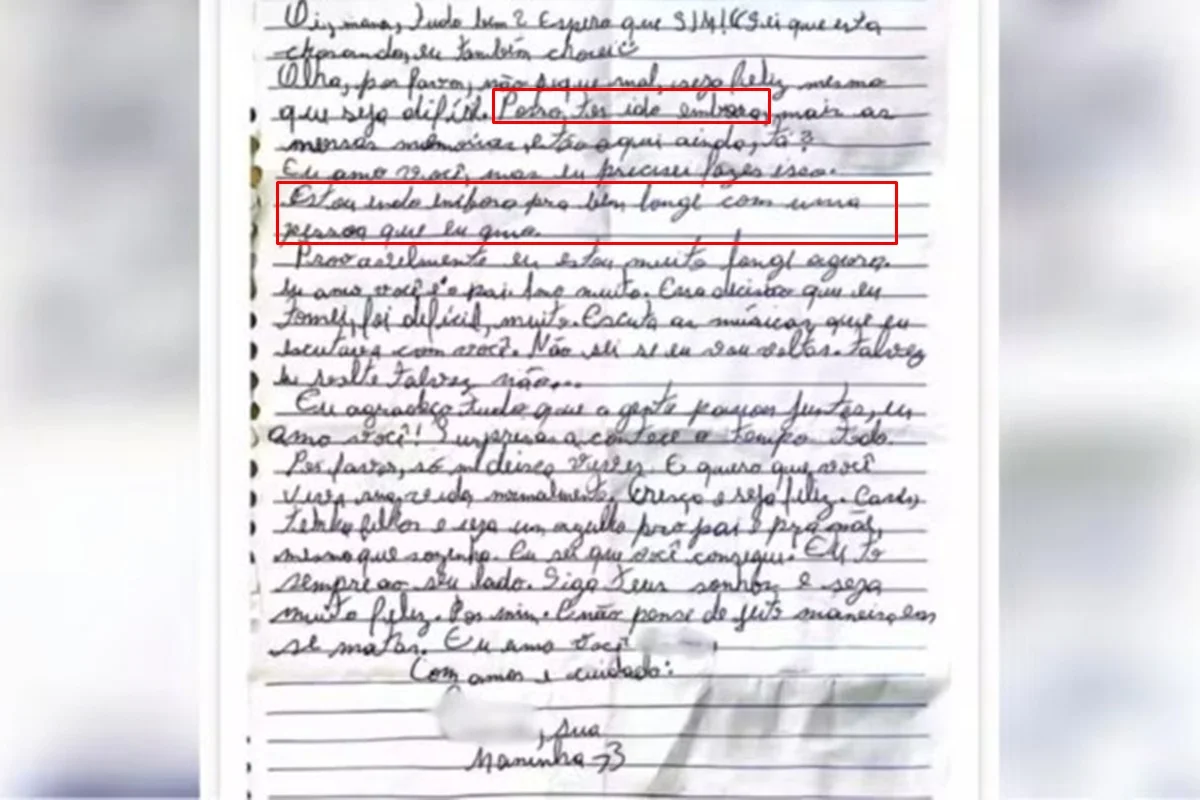 Oi, mana, tudo bem? Espero que SIM! (Sei que esta
chorando, eu também chorei
Olha, por favor, não fique mal, seja feliz mesmo
que seja difícil. Posso ter ido embora, mais as
nossas memórias, estão aqui ainda, tá?
Eu amo você, mas eu precisei fazer isso.
Estou indo embora pra bem longe com uma
pessoa que eu amo.
Provavelmente eu estou muito longe agora.
Eu amo você e o pai. Amo muito. Essa decisão que eu
tomei, foi difícil, muito. Escuta as músicas que eu
escutava com você. Não sei se eu vou voltar. Talvez
eu volte talvez não...
Eu agradeço tudo que a gente passou juntas, eu
amo você! Surpresa acontece o tempo todo.
Por favor, só me deixa viver. E quero que você
viva sua vida normalmente. Cresça e seja feliz. Case,
tenha filhos e seja um orgulho pro pai e pra mãe,
mesmo que sozinha. Eu sei que você consegue. Eu to
sempre ao seu lado. Siga teus sonhos e seja
muito feliz. Por mim. E não pense de jeito maneira em
se matar. Eu amo você
Com amor e cuidado:
, sua
Maninha <3